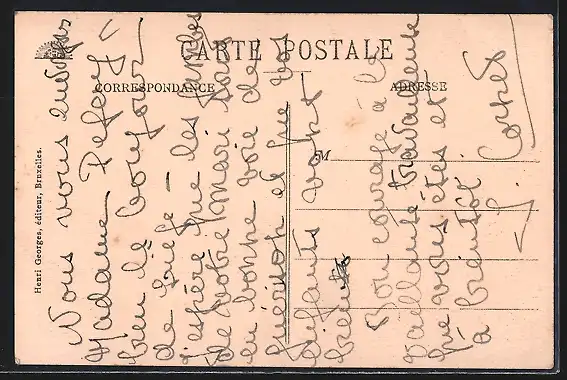 CARTE POSTALE
CORRESPONDANCE
ADRESSE
M
Henri Georges, éditeur, Bruxelles.
Nous vous envoyons
Madame
bien le bonjour
de Liège -
j'espère que les jambes
de votre mari sont
en bonne voie de
guérison et que vos
enfants vont
bien
Bon courage à la
vaillante travailleuse
que vous êtes et
à bientôt